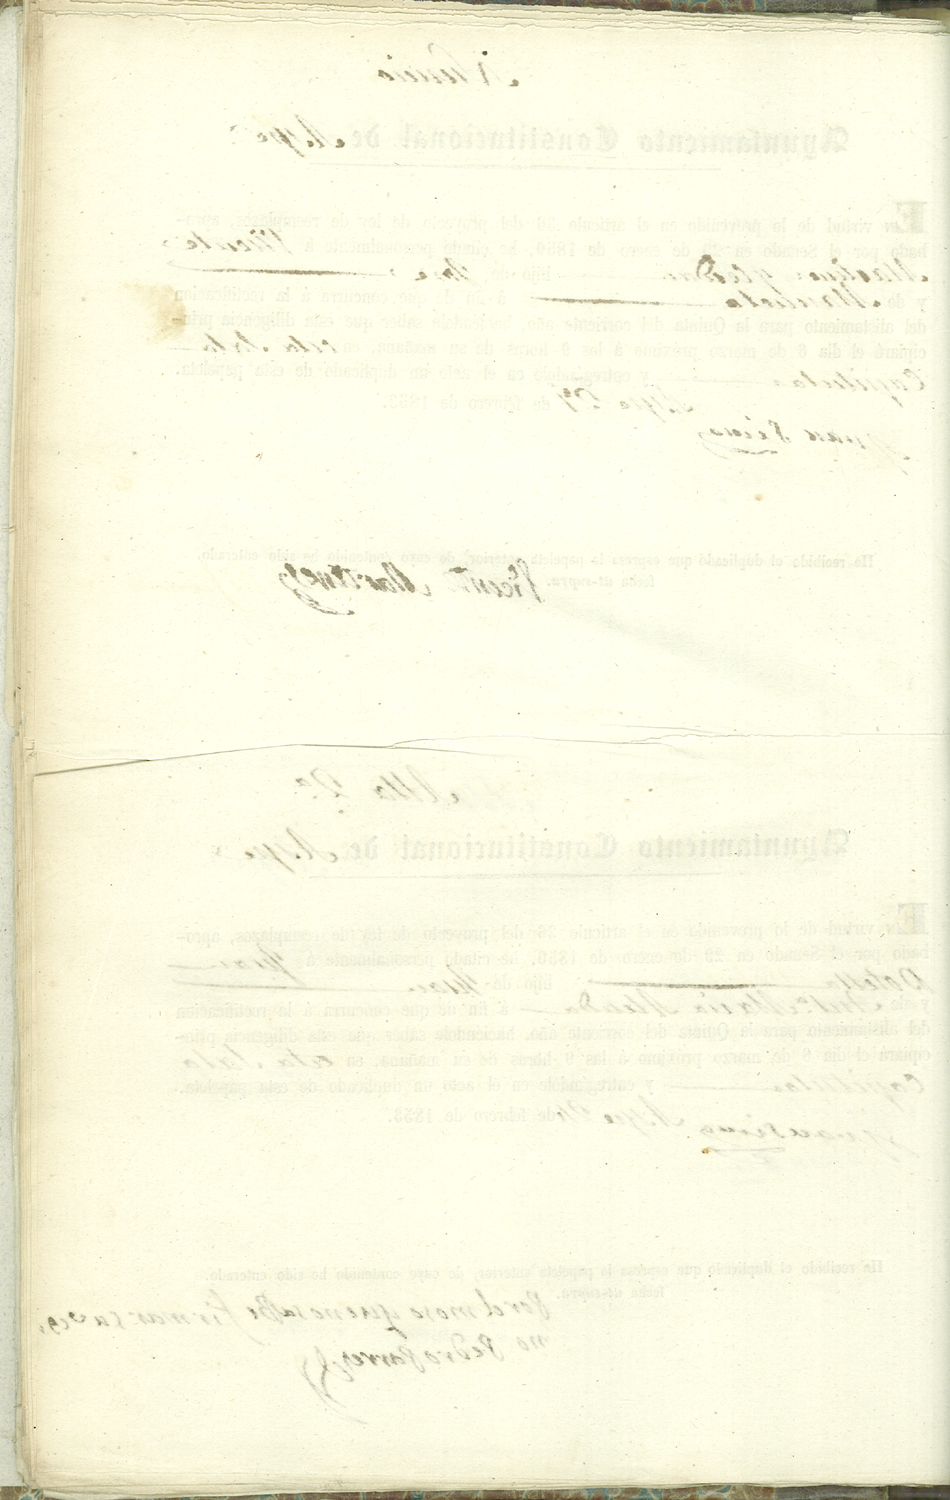 Ayuntamiento Constitucional de Aspe
En virtud de lo prevenido en el artículo 26 del proyecto de ley de reemplazos, apro-
bado por el Senado en 29 de enero de 1850, he citado personalmente á Vicente
hijo de José
y de Manuela á fin de que concurra á la rectificacion
del alistamiento para la Quinta del corriente año, haciéndole saber que esta diligencia prin-
cipiará el dia 6 de marzo próximo á las 9 horas de su mañana, en esta Sala
Capitular y entregándole en el acto un duplicado de esta papeleta.
Aspe de febrero de 1853.
Ha recibido el duplicado que espresa la papeleta anterior, de cuyo contenido he sido enterado.
fecha ut-supra.
Vicente Martinez
Ayuntamiento Constitucional de Aspe
En virtud de lo prevenido en el artículo 26 del proyecto de ley de reemplazos, apro-
bado por el Senado en 29 de enero de 1850, he citado personalmente á Juan
Botella hijo de Juan
y de Maria á fin de que concurra á la rectificacion
del alistamiento para la Quinta del corriente año, haciéndole saber que esta diligencia prin-
cipiará el dia 6 de marzo próximo á las 9 horas de su mañana, en esta Sala
Capitular y entregándole en el acto un duplicado de esta papeleta.
Aspe de febrero de 1853.
Ha recibido el duplicado que espresa la papeleta anterior, de cuyo contenido he sido enterado.
fecha ut-supra.
Por el moso que no saBe firmar su veci
no Pedro